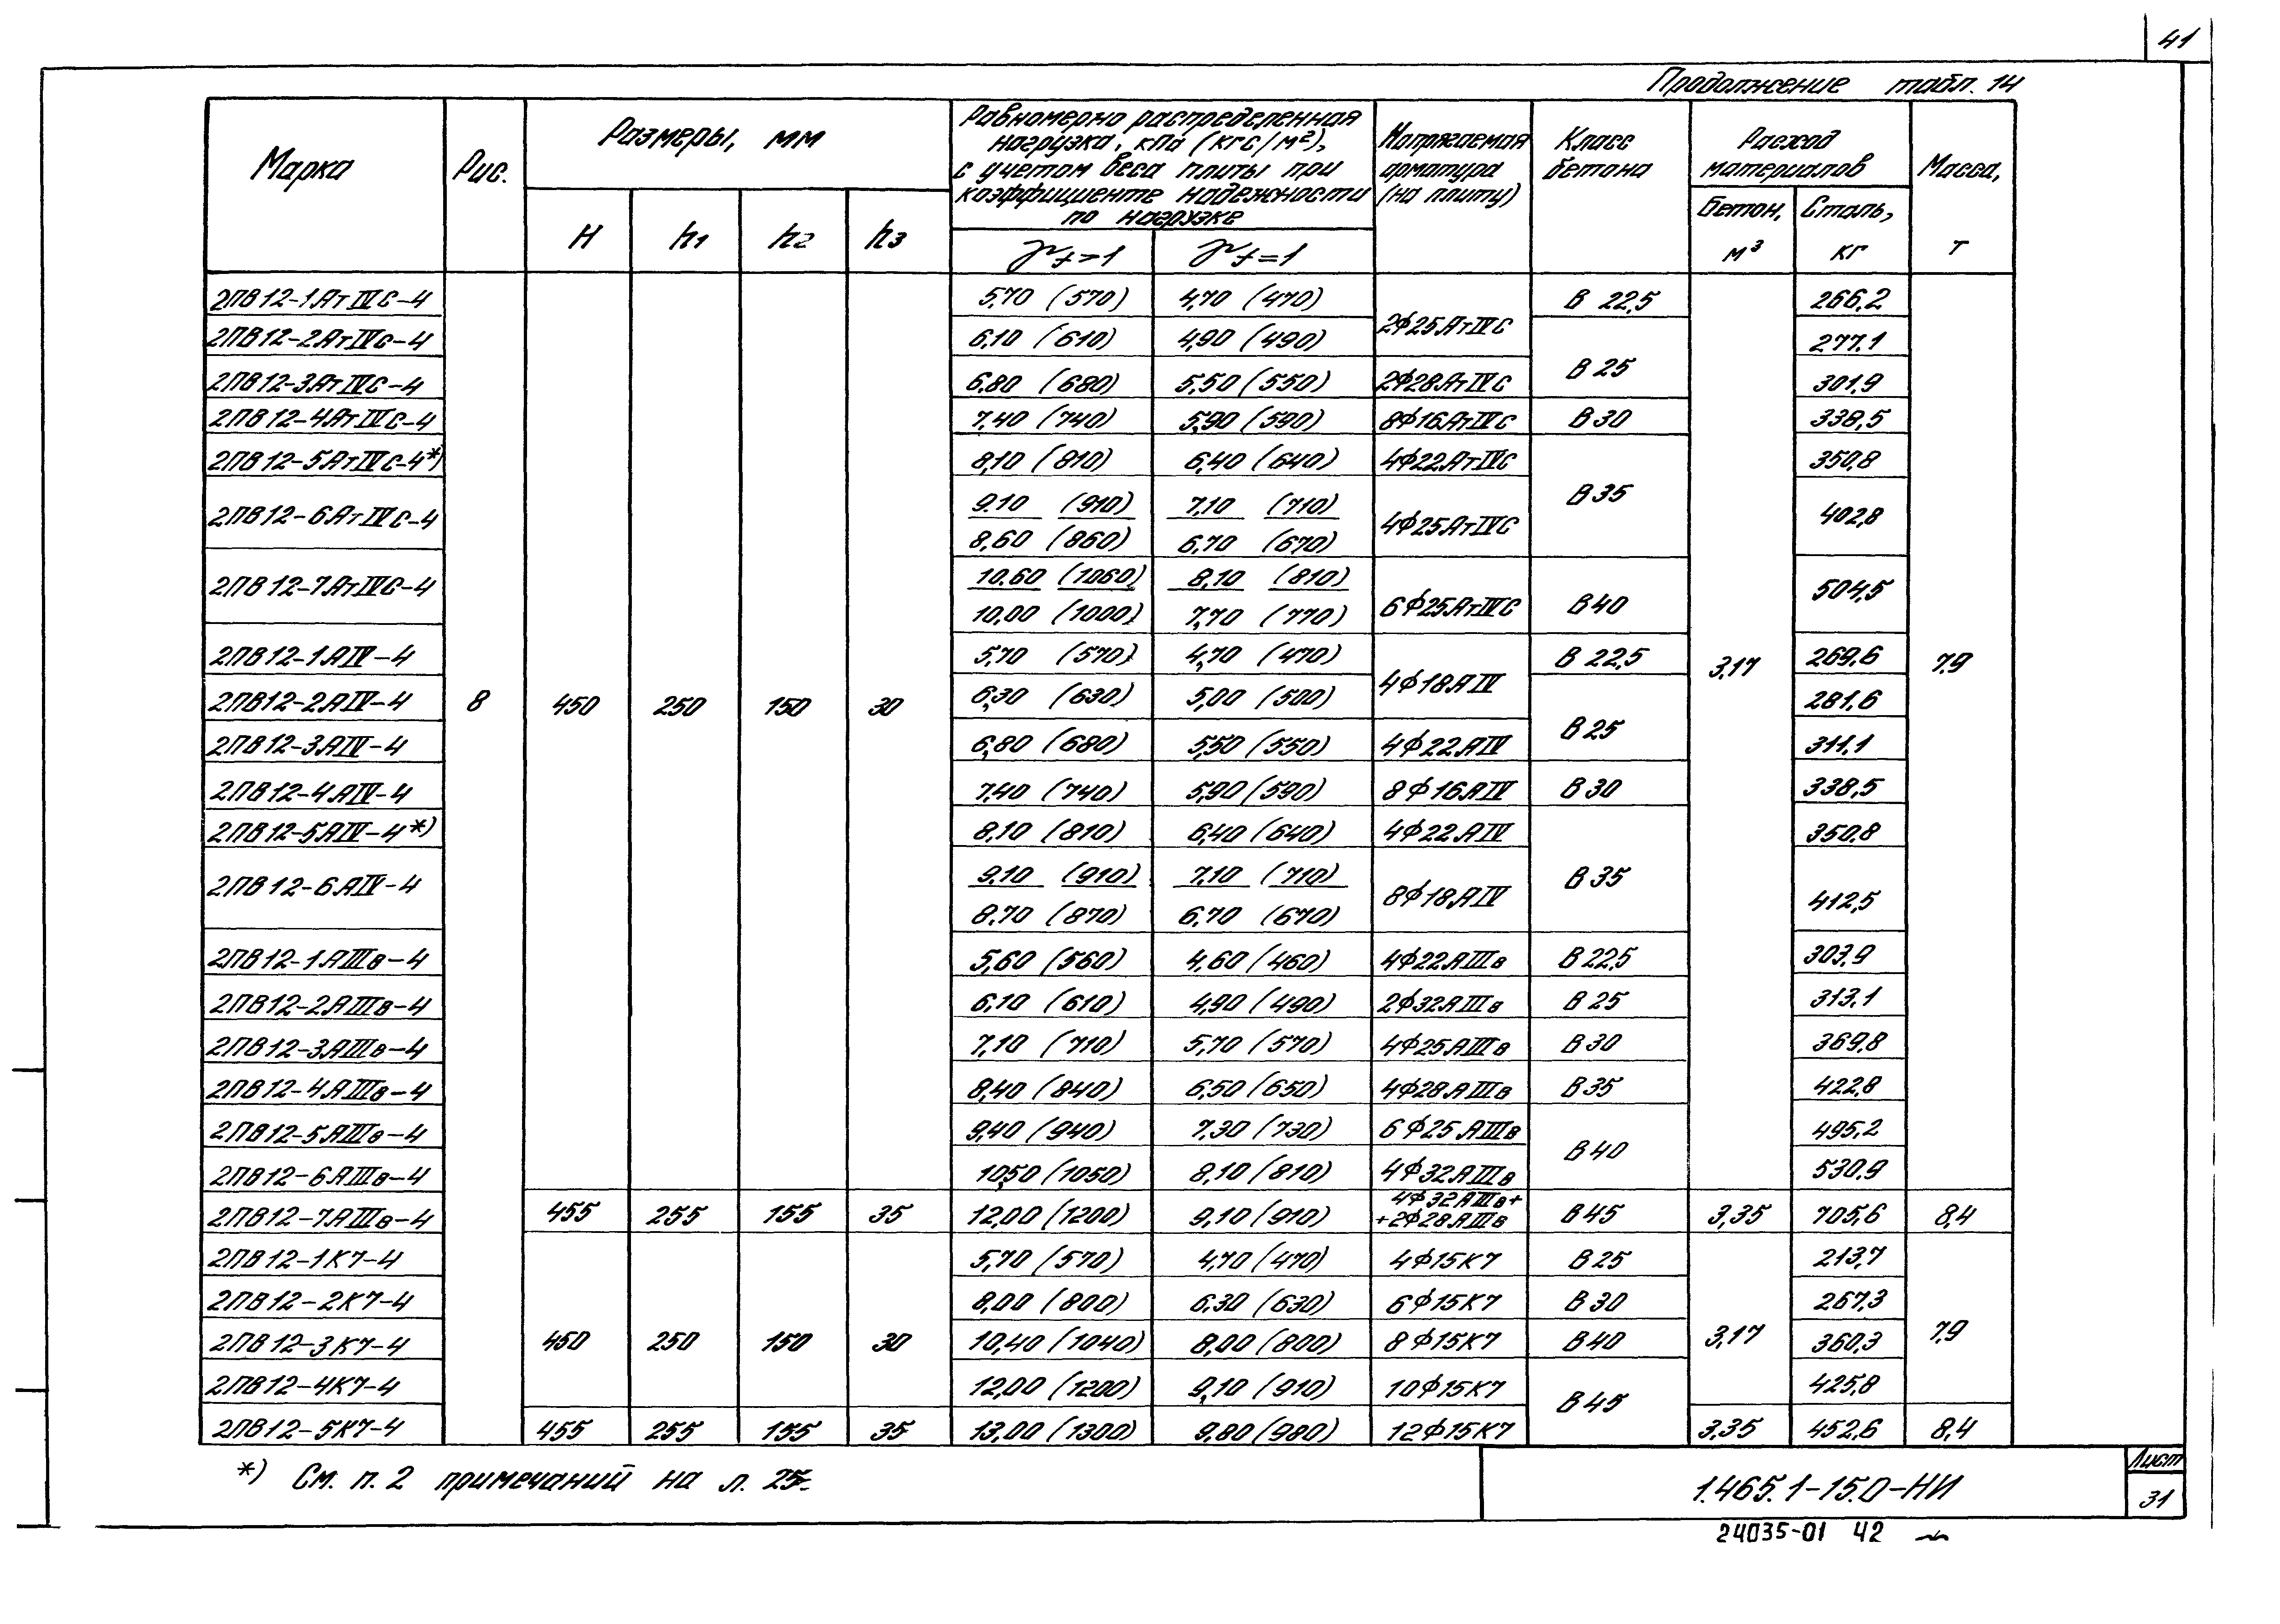 41
Продолжение табл. 14
Марка
Рис.
Размеры, мм
H
h1
h2
h3
Равномерно распределенная
нагрузка, кПа (кгс/м²),
с учетом веса плиты при
коэффициенте надежности
по нагрузке
γf>1
γf=1
Напрягаемая
арматура
(на плиту)
Класс
бетона
Расход
материалов
Бетон,
м³
Сталь,
кг
Масса,
т
2ПВ12-1АтIVС-4 5,70 (570) 4,70 (470) 2ф25АтIVС В 22,5 266,2
2ПВ12-2АтIVС-4 6,10 (610) 4,90 (490) В 25 277,1
2ПВ12-3АтIVС-4 6,80 (680) 5,50 (550) 2ф28АтIVС 301,9
2ПВ12-4АтIVС-4 7,40 (740) 5,90 (590) 8ф16АтIVС В30 338,5
2ПВ12-5АтIVС-4*) 8,10 (810) 6,40 (640) 4ф22АтIVС В35 350,8
2ПВ12-6АтIVС-4 9,10 (910) 7,10 (710) 4ф25АтIVС 402,8
8,60 (860) 6,70 (670)
2ПВ12-7АтIVС-4 10,60 (1060) 8,10 (810) 6ф25АтIVС В40 504,5
10,00 (1000) 7,70 (770)
2ПВ12-1АIV-4 5,70 (570) 4,70 (470) 4ф18АIV В 22,5 3,17 269,6 7,9
2ПВ12-2АIV-4 8 450 250 150 30 6,30 (630) 5,00 (500) В25 281,6
2ПВ12-3АIV-4 6,80 (680) 5,50 (550) 4ф22АIV 311,1
2ПВ12-4АIV-4 7,40 (740) 5,90 (590) 8ф16АIV В30 338,5
2ПВ12-5АIV-4*) 8,10 (810) 6,40 (640) 4ф22АIV В35 350,8
2ПВ12-6АIV-4 9,10 (910) 7,10 (710) 8ф18АIV 412,5
8,70 (870) 6,70 (670)
2ПВ12-1АIIIв-4 5,60 (560) 4,60 (460) 4ф22АIIIв В22,5 303,9
2ПВ12-2АIIIв-4 6,10 (610) 4,90 (490) 2ф32АIIIв В25 313,1
2ПВ12-3АIIIв-4 7,10 (710) 5,70 (570) 4ф25АIIIв В30 369,8
2ПВ12-4АIIIв-4 8,40 (840) 6,50 (650) 4ф28АIIIв В35 422,8
2ПВ12-5АIIIв-4 9,40 (940) 7,30 (730) 6ф25АIIIв В40 495,2
2ПВ12-6АIIIв-4 10,50 (1050) 8,10 (810) 4ф32АIIIв 530,9
2ПВ12-7АIIIв-4 455 255 155 35 12,00 (1200) 9,10 (910) 4ф32АIIIв+ В45 3,35 705,6 8,4
+2ф28АIIIв
2ПВ12-1К7-4 5,70 (570) 4,70 (470) 4ф15К7 В25 213,7
2ПВ12-2К7-4 8,00 (800) 6,30 (630) 6ф15К7 В30 267,3
2ПВ12-3К7-4 450 250 150 30 10,40 (1040) 8,00 (800) 8ф15К7 В40 3,17 360,3 7,9
2ПВ12-4К7-4 12,00 (1200) 9,10 (910) 10ф15К7 В45 425,8
2ПВ12-5К7-4 455 255 155 35 13,00 (1300) 9,80 (980) 12ф15К7 3,35 452,6 8,4
*) См. п. 2 примечаний на л. 25.
1.465.1-15.0-НИ
Лист
31
24035-01 42